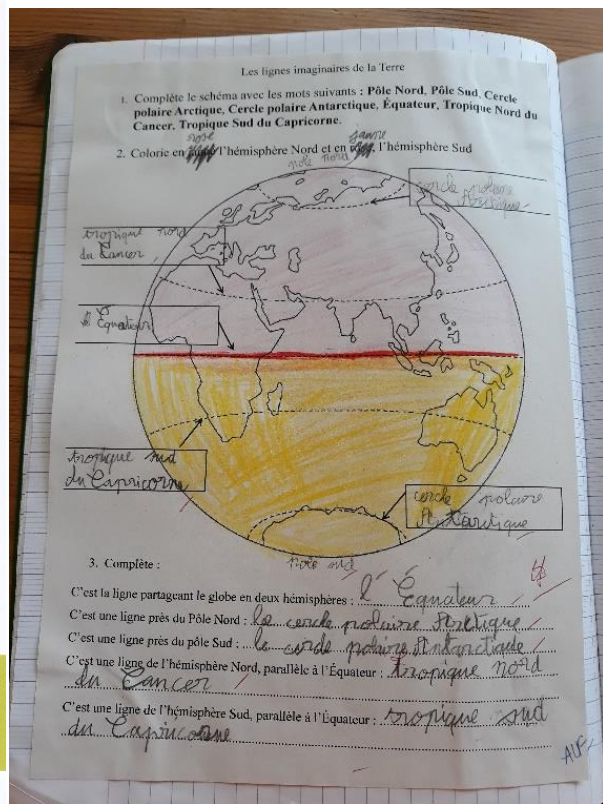 Les lignes imaginaires de la Terre
1. Complète le schéma avec les mots suivants : Pôle Nord, Pôle Sud, Cercle
polaire Arctique, Cercle polaire Antarctique, Équateur, Tropique Nord du
Cancer, Tropique Sud du Capricorne.
rose jaune
2. Colorie en l'hémisphère Nord et en l'hémisphère Sud
pole nord
cercle polaire
Arctique
tropique nord
du Cancer
Équateur
tropique sud
du Capricorne
cercle polaire
Antarctique
pole sud
3. Complète :
C'est la ligne partageant le globe en deux hémisphères : l'Équateur
C'est une ligne près du Pôle Nord : le cercle polaire Arctique
C'est une ligne près du pôle Sud : le cercle polaire Antarctique
C'est une ligne de l'hémisphère Nord, parallèle à l'Équateur : tropique nord
du Cancer
C'est une ligne de l'hémisphère Sud, parallèle à l'Équateur : tropique sud
du Capricorne